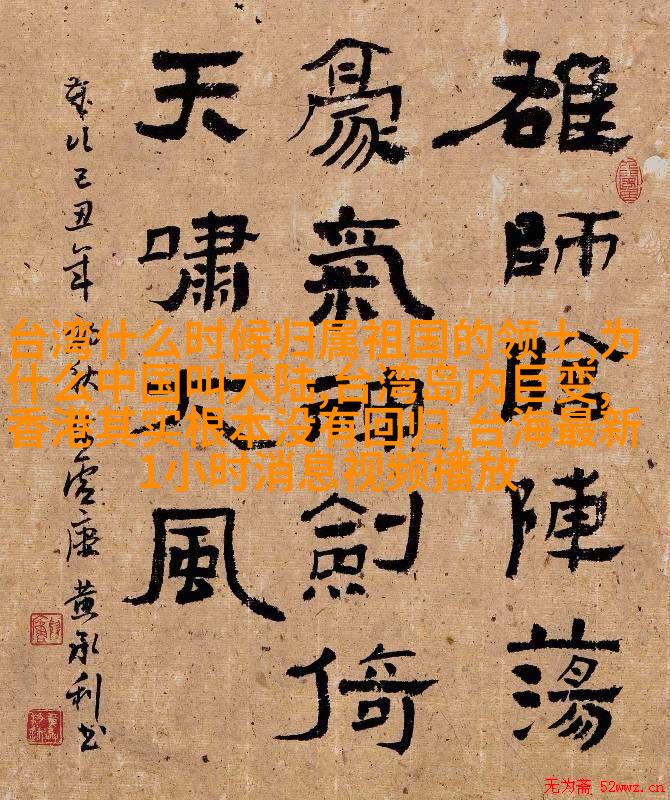 雄師陣蕩
豪氣劍倚
天嘯大風
歲次己丑年秋
黄承利书
台湾什么时候归属祖国的领土,为
什么中国叫大陆,台湾岛内巨变,
香港其实根本没有回归,台海最新
1小时消息视频播放
无为斋 52wwz.cn